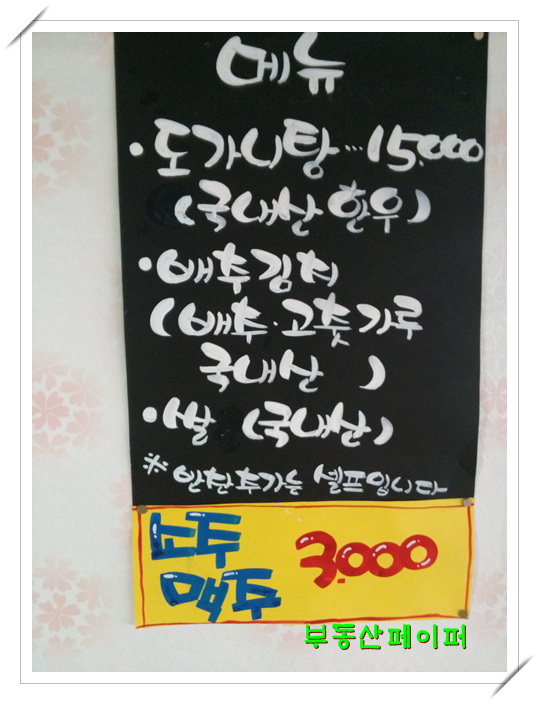 메뉴
·도가니탕...15.000
(국내산 한우)
·배추김치
(배추·고춧가루
국내산 )
·쌀 (국내산)
※ 반찬추가는 셀프입니다
소주
맥주 3.000
부동산페이퍼